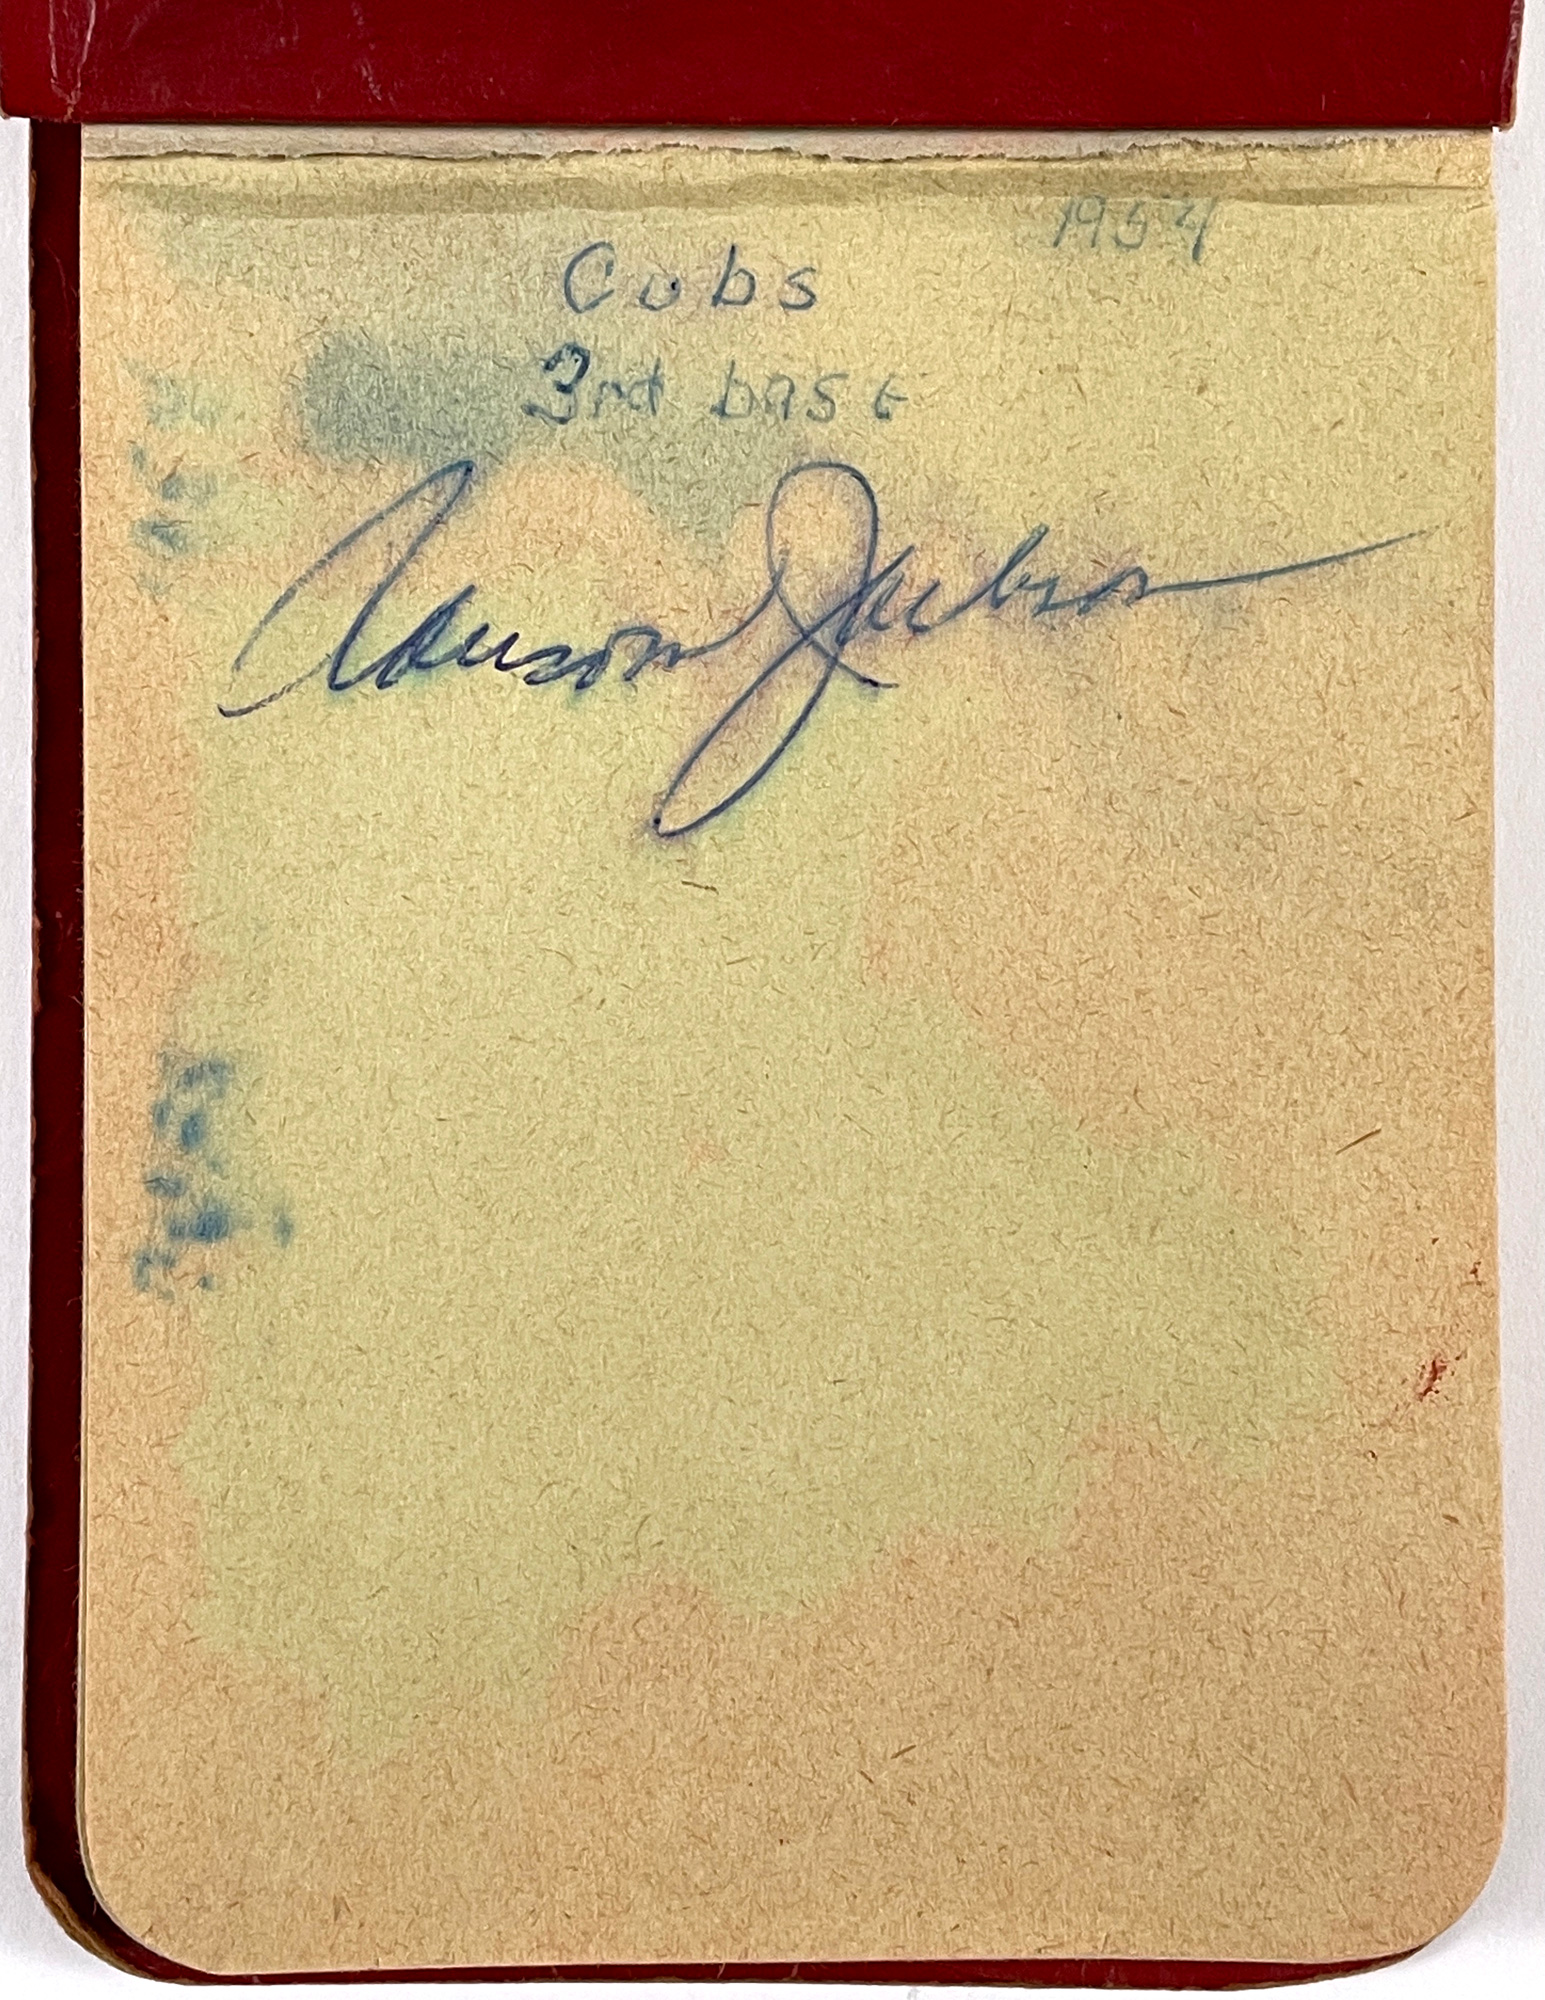 1954
Cubs
3rd base
Ransom Jackson